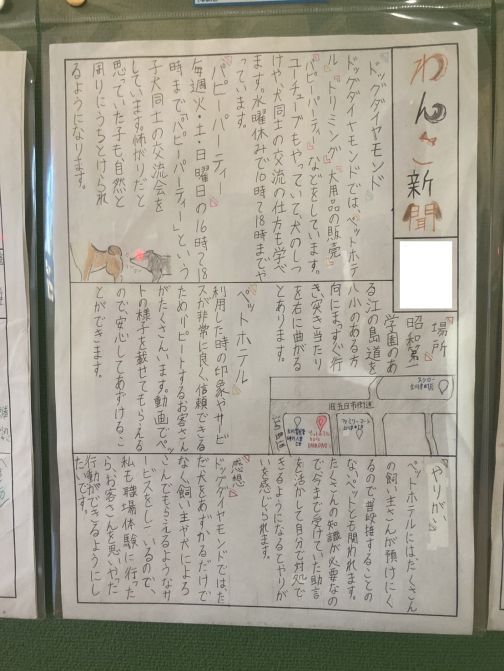 わんこ新聞
ドッグダイヤモンド
ドッグダイヤモンドでは、ペットホテ
ル、トリミング、犬用品の販売、
パピーパーティーなどをしています。
ユーチューブもやっていて、犬のしつ
けや犬同士の交流の仕方も学べ
ます。水曜休みで10時〜18時までや
っています。
パピーパーティー
毎週火・土・日曜日の16時〜18
時まで「パピーパーティー」という
子犬同士の交流会を
しています。怖がりだと
思っていた子も自然と
周りにうちとけられ
るようになります。
場所
昭和第一
学園のあ
る江の島道を
八小のある方
向にまっすぐ行
き突き当たり
を右に曲がる
とあります。
スシロー
旧五日市街道
ファミリーマート
ペットホテル
利用した時の印象やサービ
スが非常に良く、信頼できる
ためリピートするお客さん
がたくさんいます。動画でペッ
トの様子を載せてもらえる
ので安心してあずけるこ
とができます。
やりがい
ペットホテルにはたくさん
の飼い主さんが預けにく
るので普段接することの
ないペットとも関われます。
たくさんの知識が必要なの
で今まで受けていた助言
を活かして自分で対処で
きるようになるとやりが
いを感じられます。
感想
ドッグダイヤモンドでは、た
だ犬をあずかるだけで
なく、飼い主や犬によろ
こんでもらえるようなサ
ービスをしているので、
私も職場体験に行った
ら、お客さんを思いやった
行動ができるようにし
たいです。